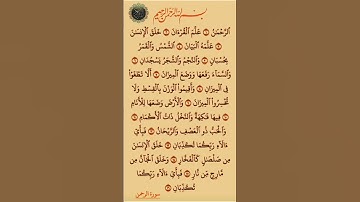 بسم الله الرحمن الرحيم
ٱلرَّحْمَٰنُ ۝ عَلَّمَ ٱلْقُرْءَانَ ۝ خَلَقَ ٱلْإِنسَٰنَ
۝ عَلَّمَهُ ٱلْبَيَانَ ۝ ٱلشَّمْسُ وَٱلْقَمَرُ
بِحُسْبَانٍ ۝ وَٱلنَّجْمُ وَٱلشَّجَرُ يَسْجُدَانِ ۝
وَٱلسَّمَآءَ رَفَعَهَا وَوَضَعَ ٱلْمِيزَانَ ۝ أَلَّا تَطْغَوْا۟
فِى ٱلْمِيزَانِ ۝ وَأَقِيمُوا۟ ٱلْوَزْنَ بِٱلْقِسْطِ وَلَا
تُخْسِرُوا۟ ٱلْمِيزَانَ ۝ وَٱلْأَرْضَ وَضَعَهَا لِلْأَنَامِ
۝ فِيهَا فَٰكِهَةٌ وَٱلنَّخْلُ ذَاتُ ٱلْأَكْمَامِ ۝
وَٱلْحَبُّ ذُو ٱلْعَصْفِ وَٱلرَّيْحَانُ ۝ فَبِأَىِّ
ءَالَآءِ رَبِّكُمَا تُكَذِّبَانِ ۝ خَلَقَ ٱلْإِنسَٰنَ
مِن صَلْصَٰلٍ كَٱلْفَخَّارِ ۝ وَخَلَقَ ٱلْجَآنَّ مِن
مَّارِجٍ مِّن نَّارٍ ۝ فَبِأَىِّ ءَالَآءِ رَبِّكُمَا
تُكَذِّبَانِ ۝
سورة الرحمن